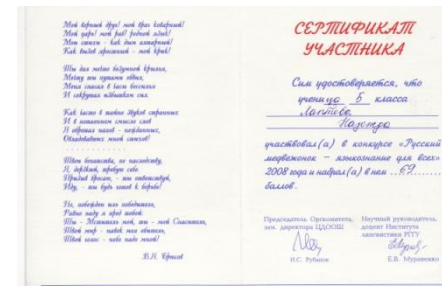 Мой верный друг! мой враг коварный!
Мой царь! мой раб! родной язык!
Мои стихи - как дым алтарный!
Как вызов яростный - мой крик!
Ты дал мечте безумной крылья,
Мечту ты путами обвил,
Меня спасал в часы бессилья
И сокрушал избытком сил.
Как часто в тайне звуков странных
И в потаенном смысле слов
Я обретал напев - нежданных,
Овладевавших мной стихов!
Твои богатства, по наследству,
Я, дерзкий, требую себе.
Призыв бросаю, - ты ответствуй,
Иду, - ты будь готов к борьбе!
Но, побежден иль победитель,
Равно паду я пред тобой:
Ты - Мститель мой, ты - мой Спаситель,
Твой мир - навек моя обитель,
Твой голос - небо надо мной!
В.Я. Брюсов
СЕРТИФИКАТ
УЧАСТНИКА
Сим удостоверяется, что
ученица 5 класса
участвовал(а) в конкурсе «Русский
медвежонок - языкознание для всех»
2008 года и набрал(а) в нем 69
баллов.
Председатель Оргкомитета,
зам. директора ЦДООШ
И.С. Рубанов
Научный руководитель,
доцент Института
лингвистики РГГУ
Е.В. Муравенко